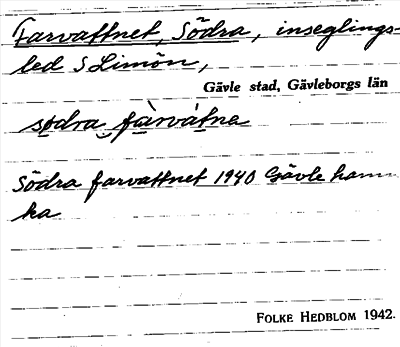 Farvattnet, Södra, inseglings-
led S Limön,
Gävle stad, Gävleborgs län
sødra fàrvátne
Södra farvattnet 1940 Gävle hamn
ka
FOLKE HEDBLOM 1942.